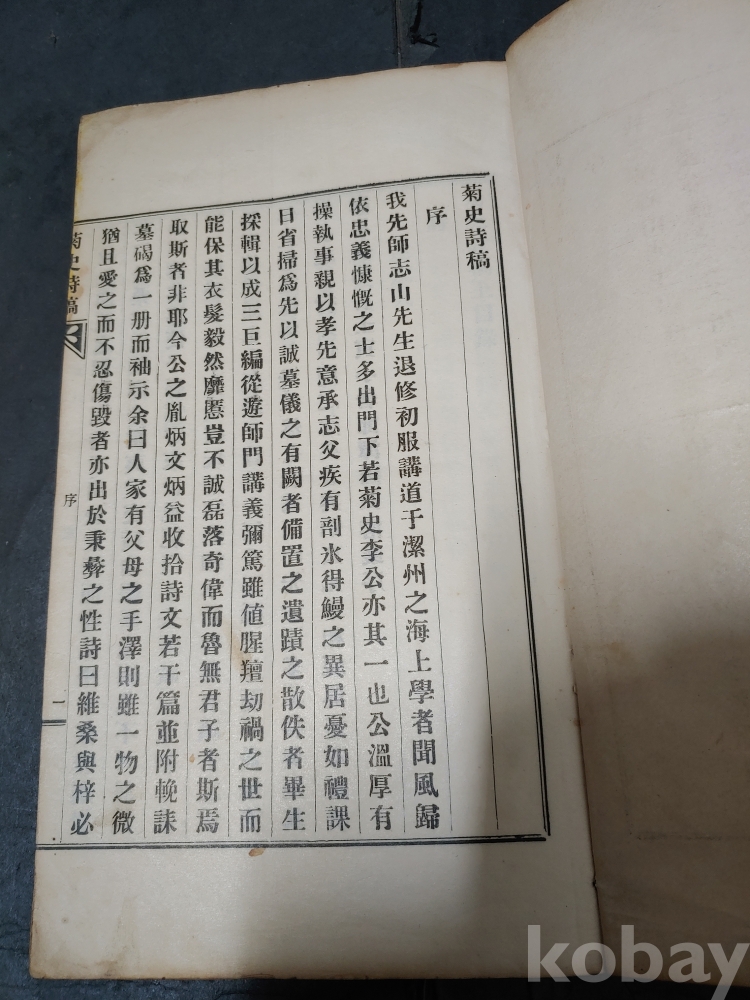 菊史詩稿
序
我先師志山先生退修初服講道于潔州之海上學者聞風歸
依忠義慷慨之士多出門下若菊史李公亦其一也公溫厚有
操執事親以孝先意承志父疾有剖氷得鰻之異居憂如禮課
日省掃爲先以誠墓儀之有闕者備置之遺蹟之散佚者畢生
採輯以成三巨編從遊師門講義彌篤雖値腥羶劫禍之世而
能保其衣髮毅然靡慝豈不誠磊落奇偉而魯無君子者斯焉
取斯者非耶今公之胤炳文炳益收拾詩文若干篇並附輓誄
墓碣爲一册而袖示余曰人家有父母之手澤則雖一物之微
猶且愛之而不忍傷毀者亦出於秉彝之性詩曰維桑與梓必
菊史詩稿
序
一
kobay